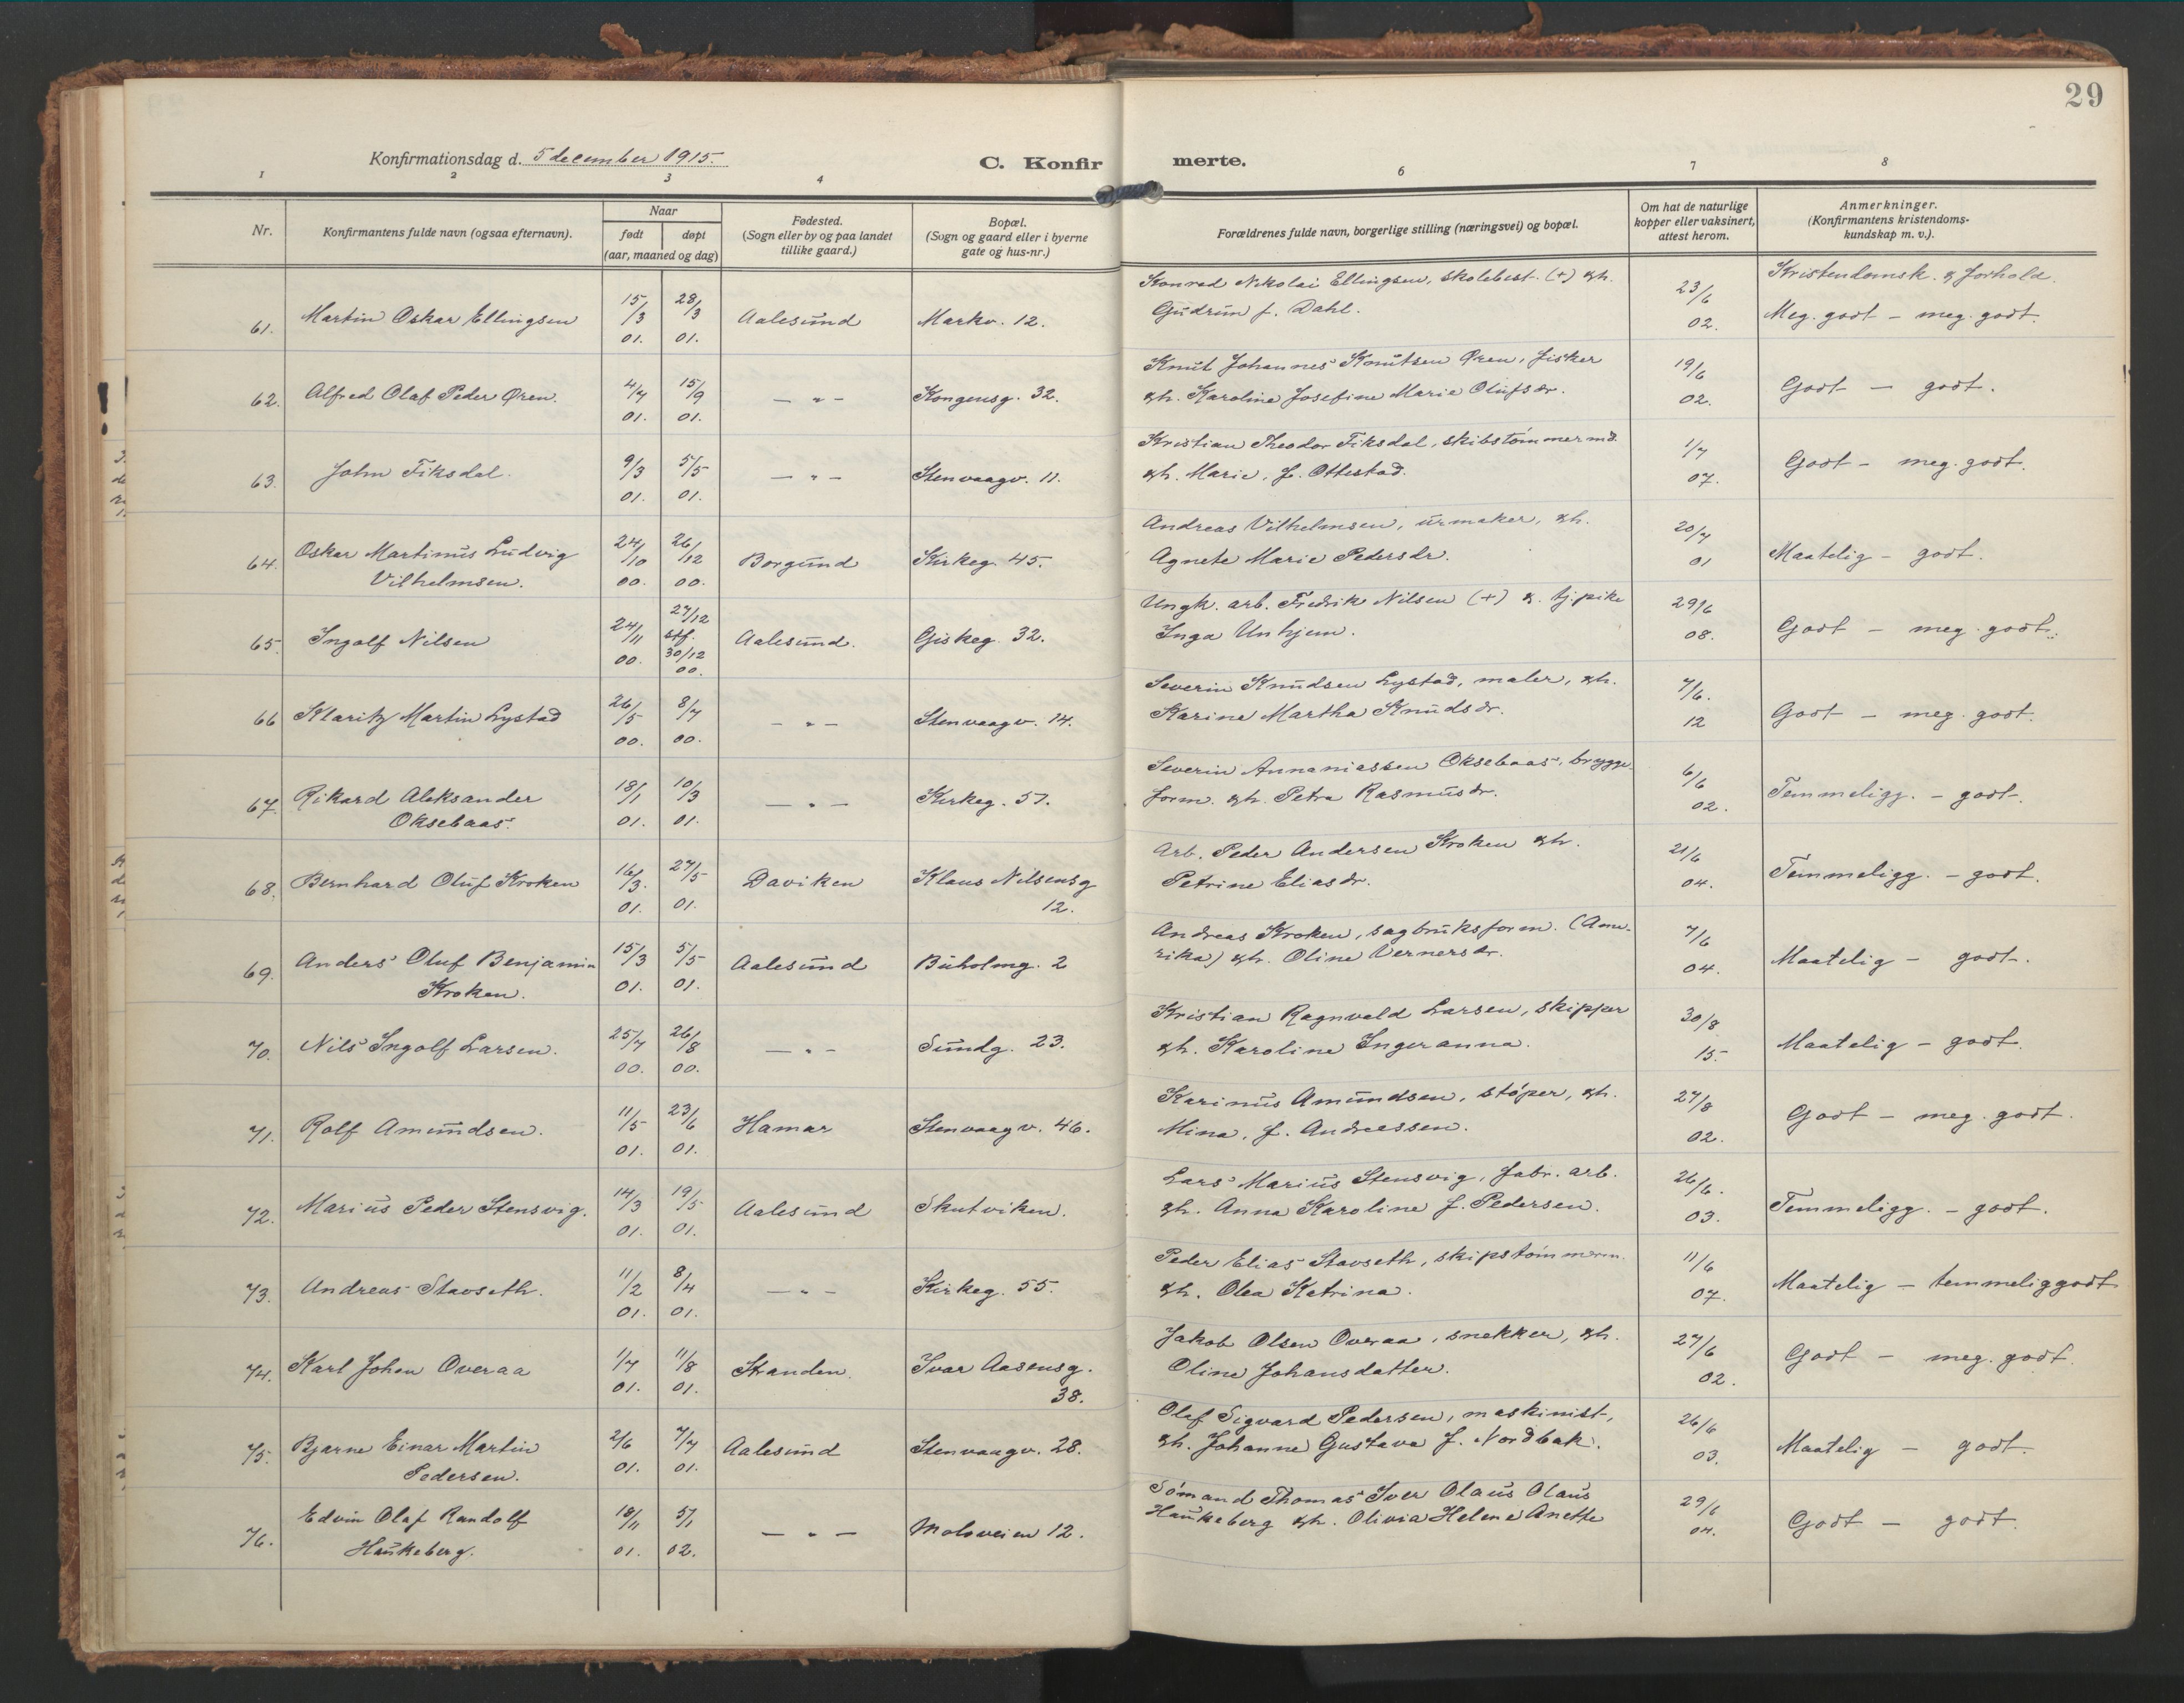 29
Konfirmationsdag d. 5 december 1915.
C. Konfir merte.
1 2 3 4 6 7 8
Nr.
Konfirmantens fulde navn (ogsaa efternavn).
Naar
født døpt
(aar, maaned og dag)
Fødested.
(Sogn eller by og paa landet
tillike gaard.)
Bopæl.
(Sogn og gaard eller i byerne
gate og hus-nr.)
Forældrenes fulde navn, borgerlige stilling (næringsvei) og bopæl.
Om hat de naturlige
kopper eller vaksinert,
attest herom.
Anmerkninger.
(Konfirmantens kristendoms-
kundskap m. v.).
Kristendomsk. & forhold.
61. Martin Oskar Ellingsen 15/3 01. 28/3 01. Aalesund Markv. 12.
Konrad Nikolai Ellingsen, skolebest. (+) &h.
Gudrun f. Dahl.
23/6 02. Meg. godt – meg. godt.
62. Alfred Olaf Peder Øren. 4/7 01. 15/9 01. — " — Kongensg. 32.
Knut Johannes Knutsen Øren, fisker
&h. Karoline Josefine Marie Olufsdr.
19/6 02. Godt – godt.
63. John Fiksdal. 9/3 01. 5/5 01. — " — Stenvaagv. 11.
Kristian Theodor Fiksdal, skibstømmermd.
&h. Marie, f. Ottestad.
1/7 07. Godt – meg. godt.
64. Oskar Martinus Ludvig
Vilhelmsen. 24/10 00. 26/12 00. Borgund Kirkeg. 45.
Andreas Vilhelmsen, urmaker, &h.
Agnete Marie Pedersdr.
20/7 01 Maatelig – godt.
65. Ingolf Nilsen 24/11 00. 27/12 stf. 30/12 00. Aalesund. Giskeg. 32.
Ungk. arb. Fredrik Nilsen (+) & tj.pike
Inga Unhjem.
29/6 08. Godt – meg. godt.
66 Klaritz Martin Lystad 26/5 00. 8/7 00. — " — Stenvaagv. 14.
Severin Knudsen Lystad, maler, &h.
Karine Martha Knudsdr.
7/6. 12 Godt – meg. godt.
67. Rikard Aleksander
Oksebaas. 18/1 01. 10/3 01. — " — Kirkeg. 57.
Severin Annaniassen Oksebaas, brygge-
form. &h. Petra Rasmusdr.
6/6 02. Temmeligg. – godt.
68. Bernhard Oluf Kroken 16/3. 01. 27/5 01. Daviken Klaus Nilsensg
12.
Arb. Peder Andersen Kroken &h.
Petrine Eliasdr.
21/6 04. Temmeligg. – godt.
69. Anders Oluf Benjamin
Kroken. 15/3 01. 5/5 01. Aalesund Buholmg. 2
Andreas Kroken, sagbruksform. (Ame-
rika) &h. Oline Vernersdr.
7/6 04. Maatelig – godt.
70. Nils Ingolf Larsen. 25/7 00. 26/8 00. — " — Sundg. 23.
Kristian Ragnvald Larsen, skipper
&h. Karoline Ingeranna.
30/8 15. Maatelig – godt.
71. Rolf Amundsen. 11/5 01. 23/6 01. Hamar Stenvaagv. 46.
Karinus Amundsen, støper, &h.
Mina, f. Andreassen.
27/8 02. Godt – meg. godt.
72. Marius Peder Stensvig. 14/3 01. 19/5 01. Aalesund Skutviken.
Lars Marius Stensvig, fabr. arb.
&h. Anna Karoline f. Pedersen.
26/6. 03. Temmeligg. – godt.
73. Andreas Stavseth. 11/2 01. 8/4 01. — " — Kirkeg. 55.
Peder Elias Stavseth, skipstømmerm.
&h. Olea Katrina.
11/6 07. Maatelig – temmeliggodt
74. Karl Johan Overaa 1/7 01. 11/8 01. Stranden. Ivar Aasensg.
38.
Jakob Olsen Overaa, snekker, &h.
Oline Johansdatter.
27/6 02. Godt – meg. godt.
75. Bjarne Einar Martin
Pedersen. 2/6 01. 7/7 01. Aalesund Stenvaagv. 28.
Olaf Sigvard Pedersen, maskinist,
&h. Johanne Gustava f. Nordbak.
26/6 03. Maatelig – godt.
76. Edvin Olaf Randolf
Haukeberg. 18/11 01. 5/1 02. — " — Moloveien 12.
Sømand Thomas Iver Olaus Olaus
Haukeberg &h. Olivia Helene Anette
29/6 04. Godt – godt.